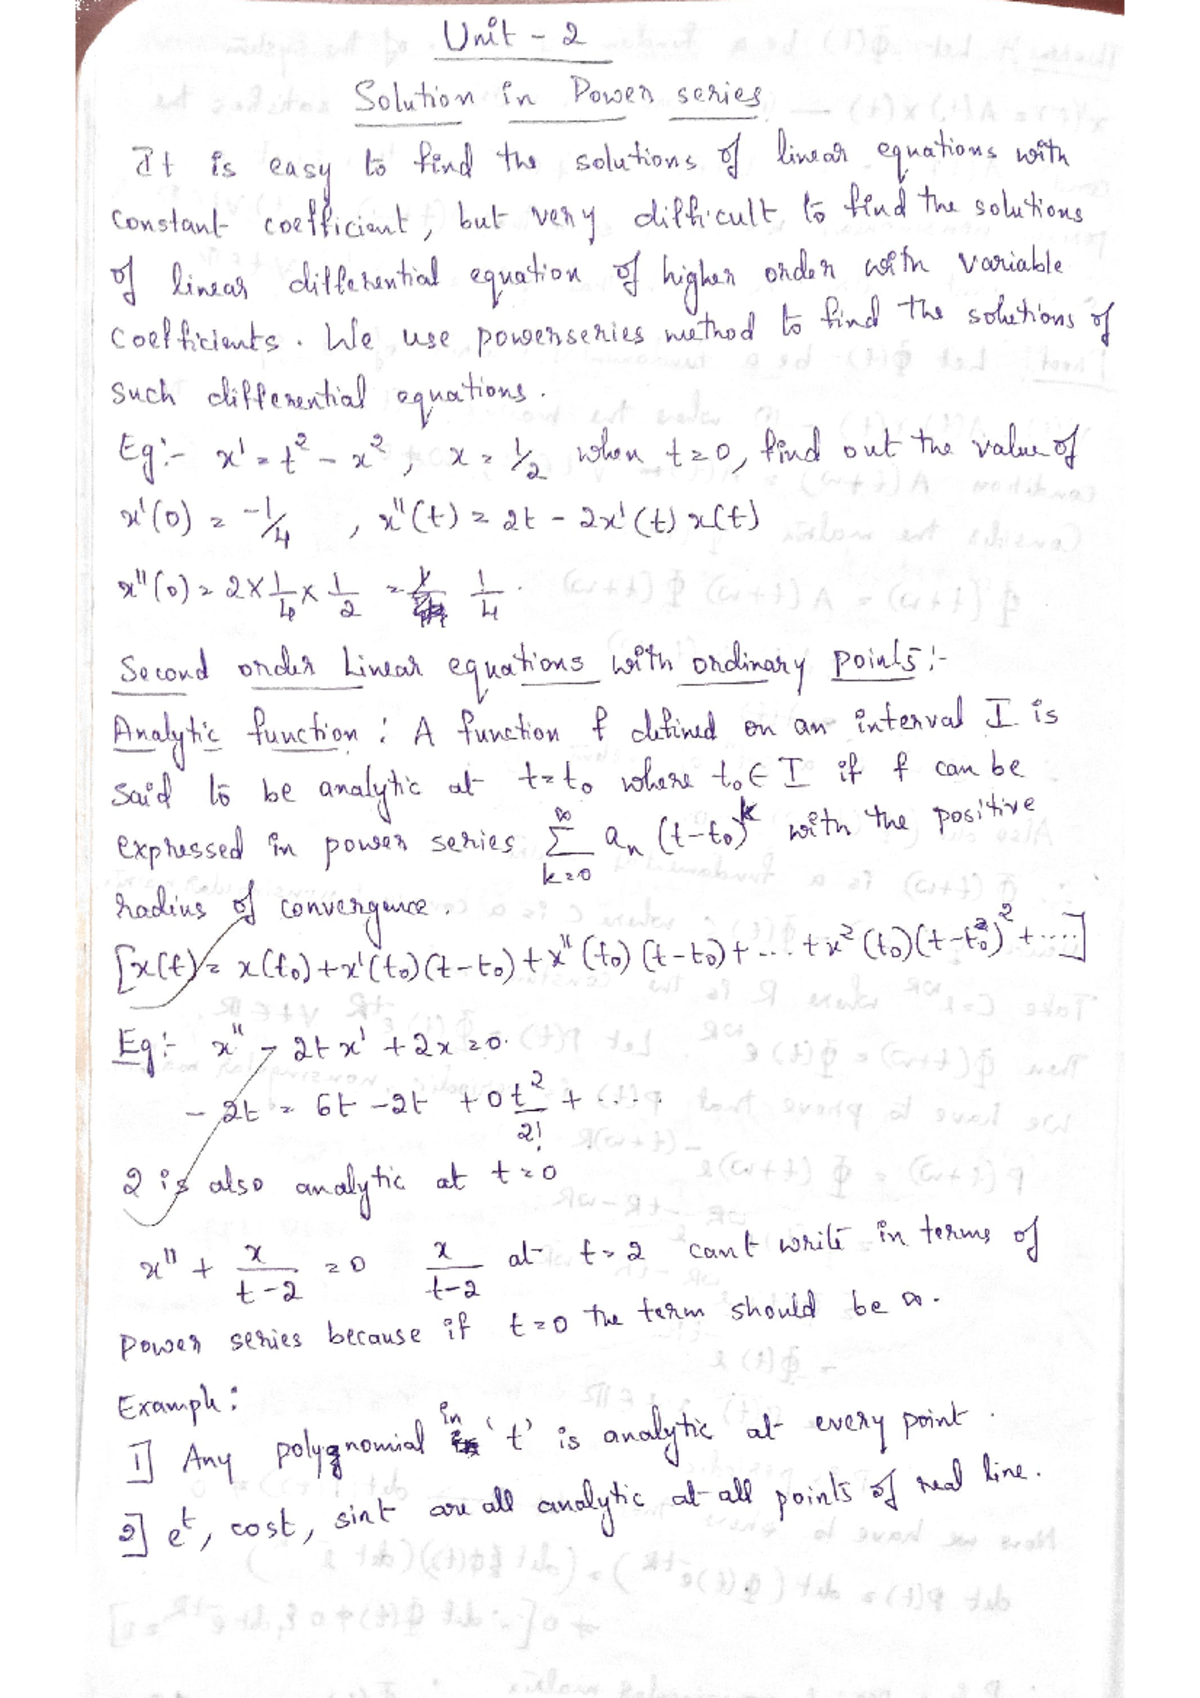 Unit - 2
Solution in Power series
It is easy to find the solutions of linear equations with
constant coefficient, but very difficult to find the solutions
of linear differential equation of higher order with variable
coefficients. We use powerseries method to find the solutions of
such differential equations.
Eg:- x' = t² - x², x = 1/2 when t=0, find out the value of
x'(0) = -1/4 , x''(t) = 2t - 2x'(t) x(t)
x''(0) = 2 × 1/4 × 1/2 = 1/4.
Second order Linear equations with ordinary points:-
Analytic function : A function f defined on an interval I is
said to be analytic at t=t₀ where t₀ ∈ I if f can be
expressed in power series ∑_{k=0}^{∞} aₙ (t-t₀)^k with the positive
radius of convergence.
[x(t) = x(t₀) + x'(t₀)(t-t₀) + x''(t₀)(t-t₀) + ... + x²(t₀)(t-t₀²)² + ....]
Eg:- x'' - 2t x' + 2x = 0.
- 2t = 6t - 2t + 0 t²/2! + ....
2 is also analytic at t=0
x'' + x/(t-2) = 0 x/(t-2) at t=2 can't write in terms of
power series because if t=0 the term should be ∞.
Example:
1] Any polygnomial in 't' is analytic at every point.
2] e^t, cost, sint are all analytic at all points of real line.